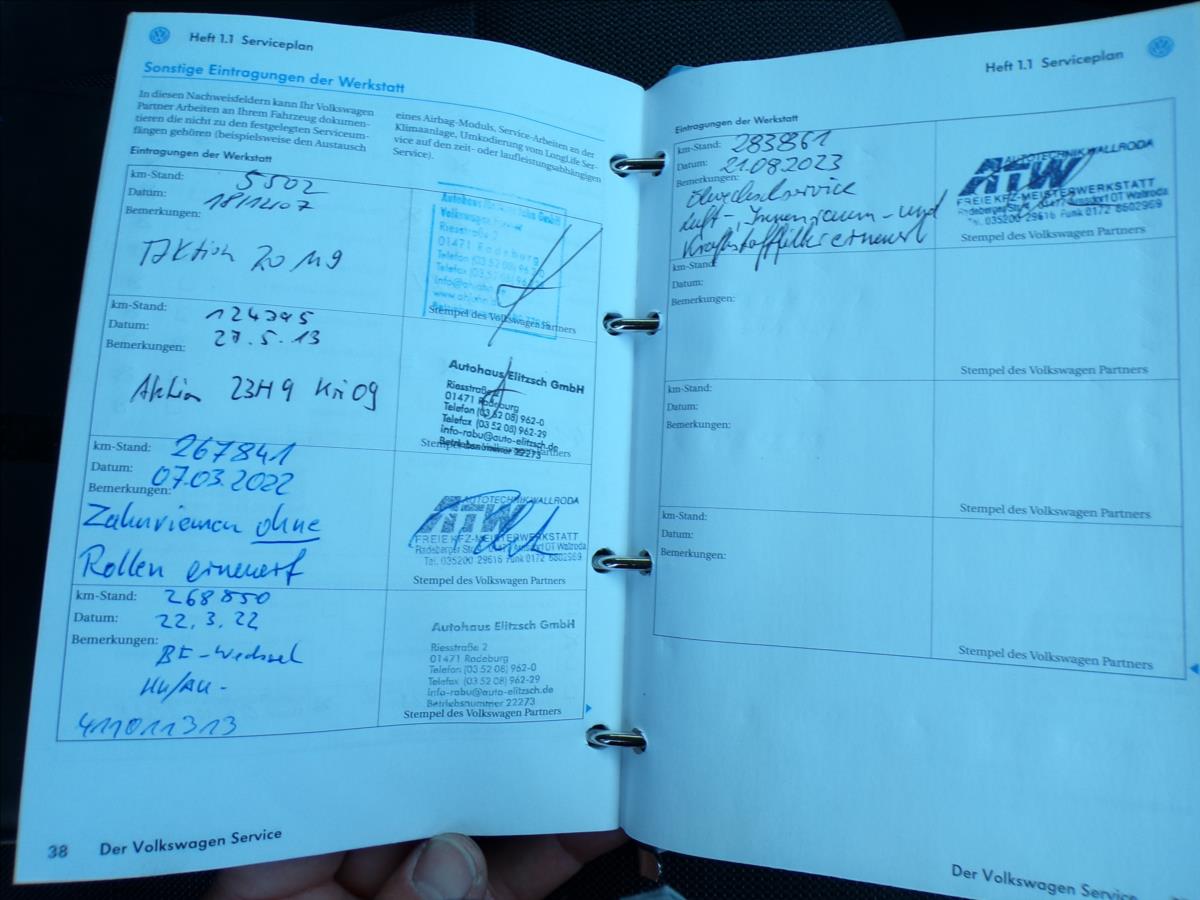 Heft 1.1 Serviceplan
Sonstige Eintragungen der Werkstatt
In diesen Nachweisfeldern kann Ihr Volkswagen
Partner Arbeiten an Ihrem Fahrzeug dokumen-
tieren die nicht zu den festgelegten Serviceum-
fängen gehören (beispielsweise den Austausch
eines Airbag-Moduls, Service-Arbeiten an der
Klimaanlage, Umkodierung vom LongLife Ser-
vice auf den zeit- oder laufleistungsabhängigen
Service).
Eintragungen der Werkstatt
km-Stand: 5502
Datum: 18/12/07
Bemerkungen:
Aktion 20 M9
Autohaus
Volkswagen
Riesstraße 2
01471 Radeburg
Telefon (03 52 08) 96
Telefax (03 52 08) 96
Stempel des Volkswagen Partners
km-Stand: 124395
Datum: 27.5.13
Bemerkungen:
Aktion 23H9
Autohaus Elitzsch GmbH
Riesstraße
01471 Radeburg
Telefon (03 52 08) 962-0
Telefax (03 52 08) 962-29
info-rabu@auto-elitzsch.de
Betriebsnummer 22273
Stempel des Volkswagen Partners
km-Stand: 267841
Datum: 07.03.2022
Bemerkungen:
Zahnriemen ohne
Rollen erneuert
AUTOTECHNIK WALLRODA
ATW
FREIE KFZ-MEISTERWERKSTATT
Radeberger Str. OT Wallroda
Tel. 035200 29616 Funk 0172 8602969
Stempel des Volkswagen Partners
km-Stand: 268850
Datum: 22.3.22
Bemerkungen:
BF-Wechsel
HU/AU-
411011313
Autohaus Elitzsch GmbH
Riesstraße 2
01471 Radeburg
Telefon (03 52 08) 962-0
Telefax (03 52 08) 962-29
info-rabu@auto-elitzsch.de
Betriebsnummer 22273
Stempel des Volkswagen Partners
38 Der Volkswagen Service
Heft 1.1 Serviceplan
Eintragungen der Werkstatt
km-Stand: 283861
Datum: 21.08.2023
Bemerkungen:
Ölwechselservice
Luft-, Innenraum- und
Kraftstofffilter erneuert
AUTOTECHNIK WALLRODA
ATW
FREIE KFZ-MEISTERWERKSTATT
Radeberger Str. Arnsdorf OT Wallroda
Tel. 035200 29616 Funk 0172 8602969
Stempel des Volkswagen Partners
km-Stand:
Datum:
Bemerkungen:
Stempel des Volkswagen Partners
km-Stand:
Datum:
Bemerkungen:
Stempel des Volkswagen Partners
km-Stand:
Datum:
Bemerkungen:
Stempel des Volkswagen Partners
Der Volkswagen Service